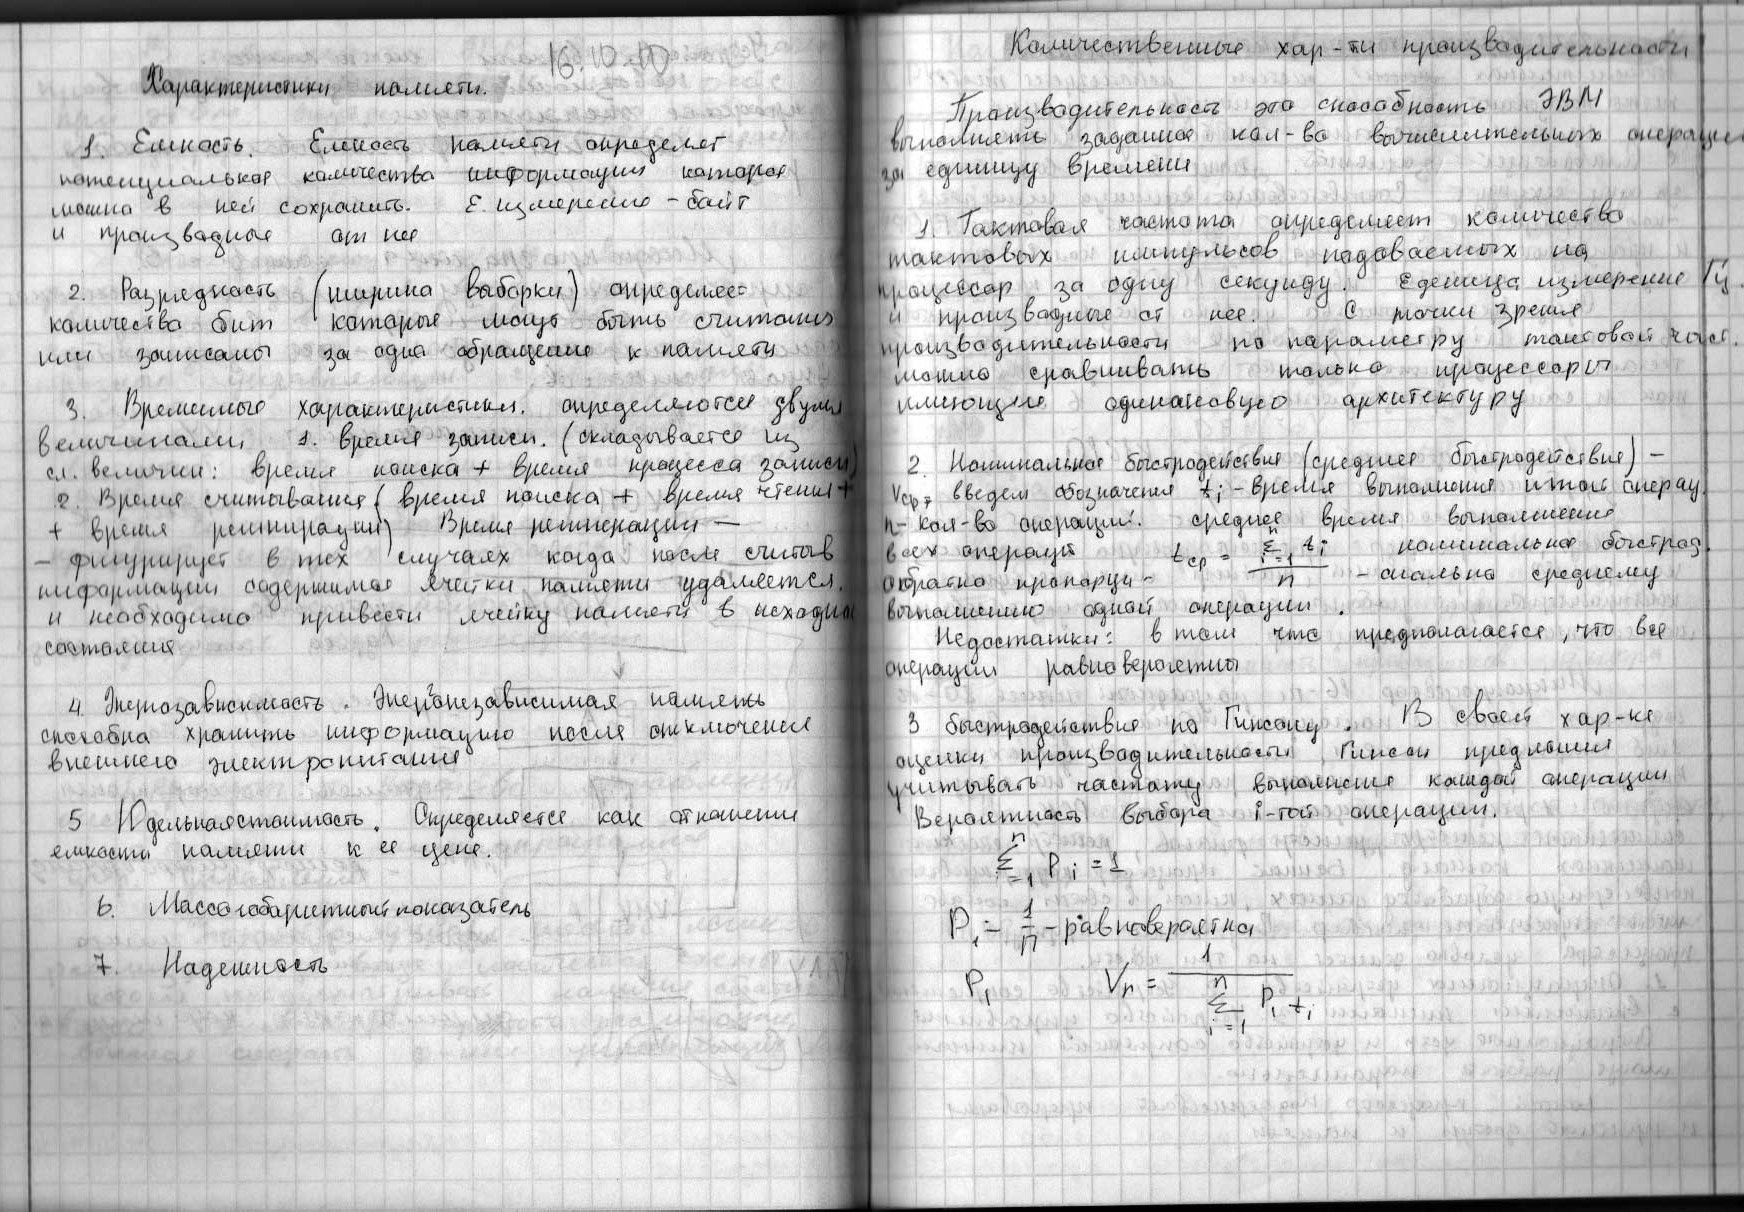 16.10.10
Характеристики памяти.
1. Емкость. Емкость памяти определяет
потенциальное количества информации которое
можно в ней сохранить. Е. измерение - байт
и производные от нее
2. Разрядность (ширина выборки) определяет
количество бит которые могут быть считаны
или записаны за одно обращение к памяти
3. Временные характеристики. определяются двумя
величинами 1. время записи. (складывается из
сл. величин: время поиска + время процесса записи)
2. Время считывания (время поиска + время чтения +
+ время регенирации) Время регенерации -
- фигурирует в тех случаях когда после считыв
информации содержимое ячейки памяти удаляется.
и необходимо привести ячейку памяти в исходное
состояния
4. Энергозависимость. Энергонезависимая память
способна хранить информацию после отключения
внешнего электропитание
5 Удельная стоимость. Определяется как отношении
емкости памяти к ее цене.
6. Массогобаритный показатель
7. Надежность
Количественные хар-ти производительности
Производительность это способность ЭВМ
выполнять заданное кол-во вычислительных операции
за единицу времени
1. Тактовая частота определяет количество
тактовых импульсов подаваемых на
процессор за одну секунду. Еденица измерение Гц.
и производные от нее. С точки зрения
производительности по параметру тактовой част.
можно сравнивать только процессоры
имеющие одинаковую архитектуру
2. Номинальное быстродействие (среднее быстродействие) -
Vср, введем обозначения ti - время выполнения итой операц.
n- кол-во операций. среднее время выполнение
всех операций tср = Σ i=1 n ti / n номинальное быстрод.
обратно пропорци- - онально среднему
выполнению одной операции.
Недостатки: в том что предполагается, что все
операции равновероятны
3 быстродействие по Гипсону. В своей хар-ке
оценки производительности Гипсон предложил
учитывать частоту выполнение каждой операции
Вероятность выбора i-той операции.
Σ i=1 n Pi = 1
Pi = 1/n - равновероятна
Pi Vn = 1 / Σ i=1 n Pi ti